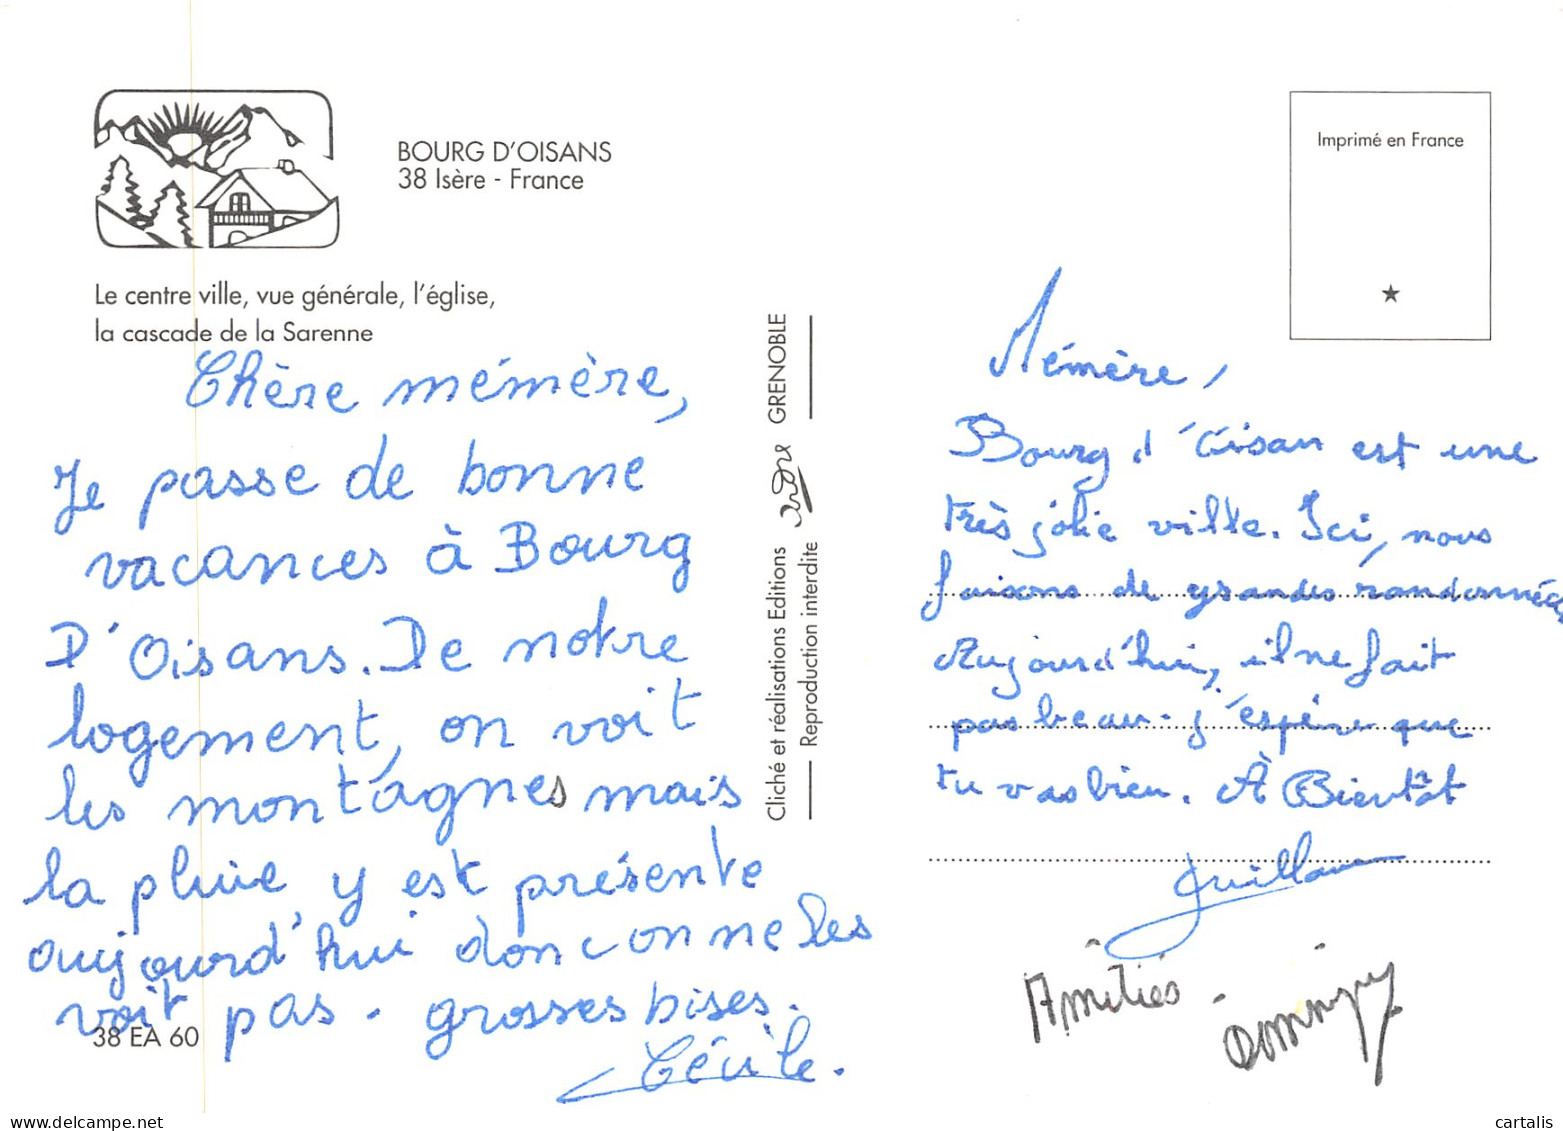 BOURG D'OISANS
38 Isère - France
Le centre ville, vue générale, l'église,
la cascade de la Sarenne
Chère mémère,
Je passe de bonne
vacances à Bourg
D'Oisans. De notre
logement, on voit
les montagnes mais
la pluie y est présente
aujourd'hui donc on ne les
voit pas. grosses bises.
Cécile.
38 EA 60
Cliché et réalisations Editions André GRENOBLE
Reproduction interdite
Imprimé en France
Mémère,
Bourg d'Oisan est une
très jolie ville. Ici, nous
faisons de grandes randonnées
Aujourd'hui, il ne fait
pas beau. j'espère que
tu vas bien. À Bientôt
Guillaume
Amitiés.
Dominique
cartalis